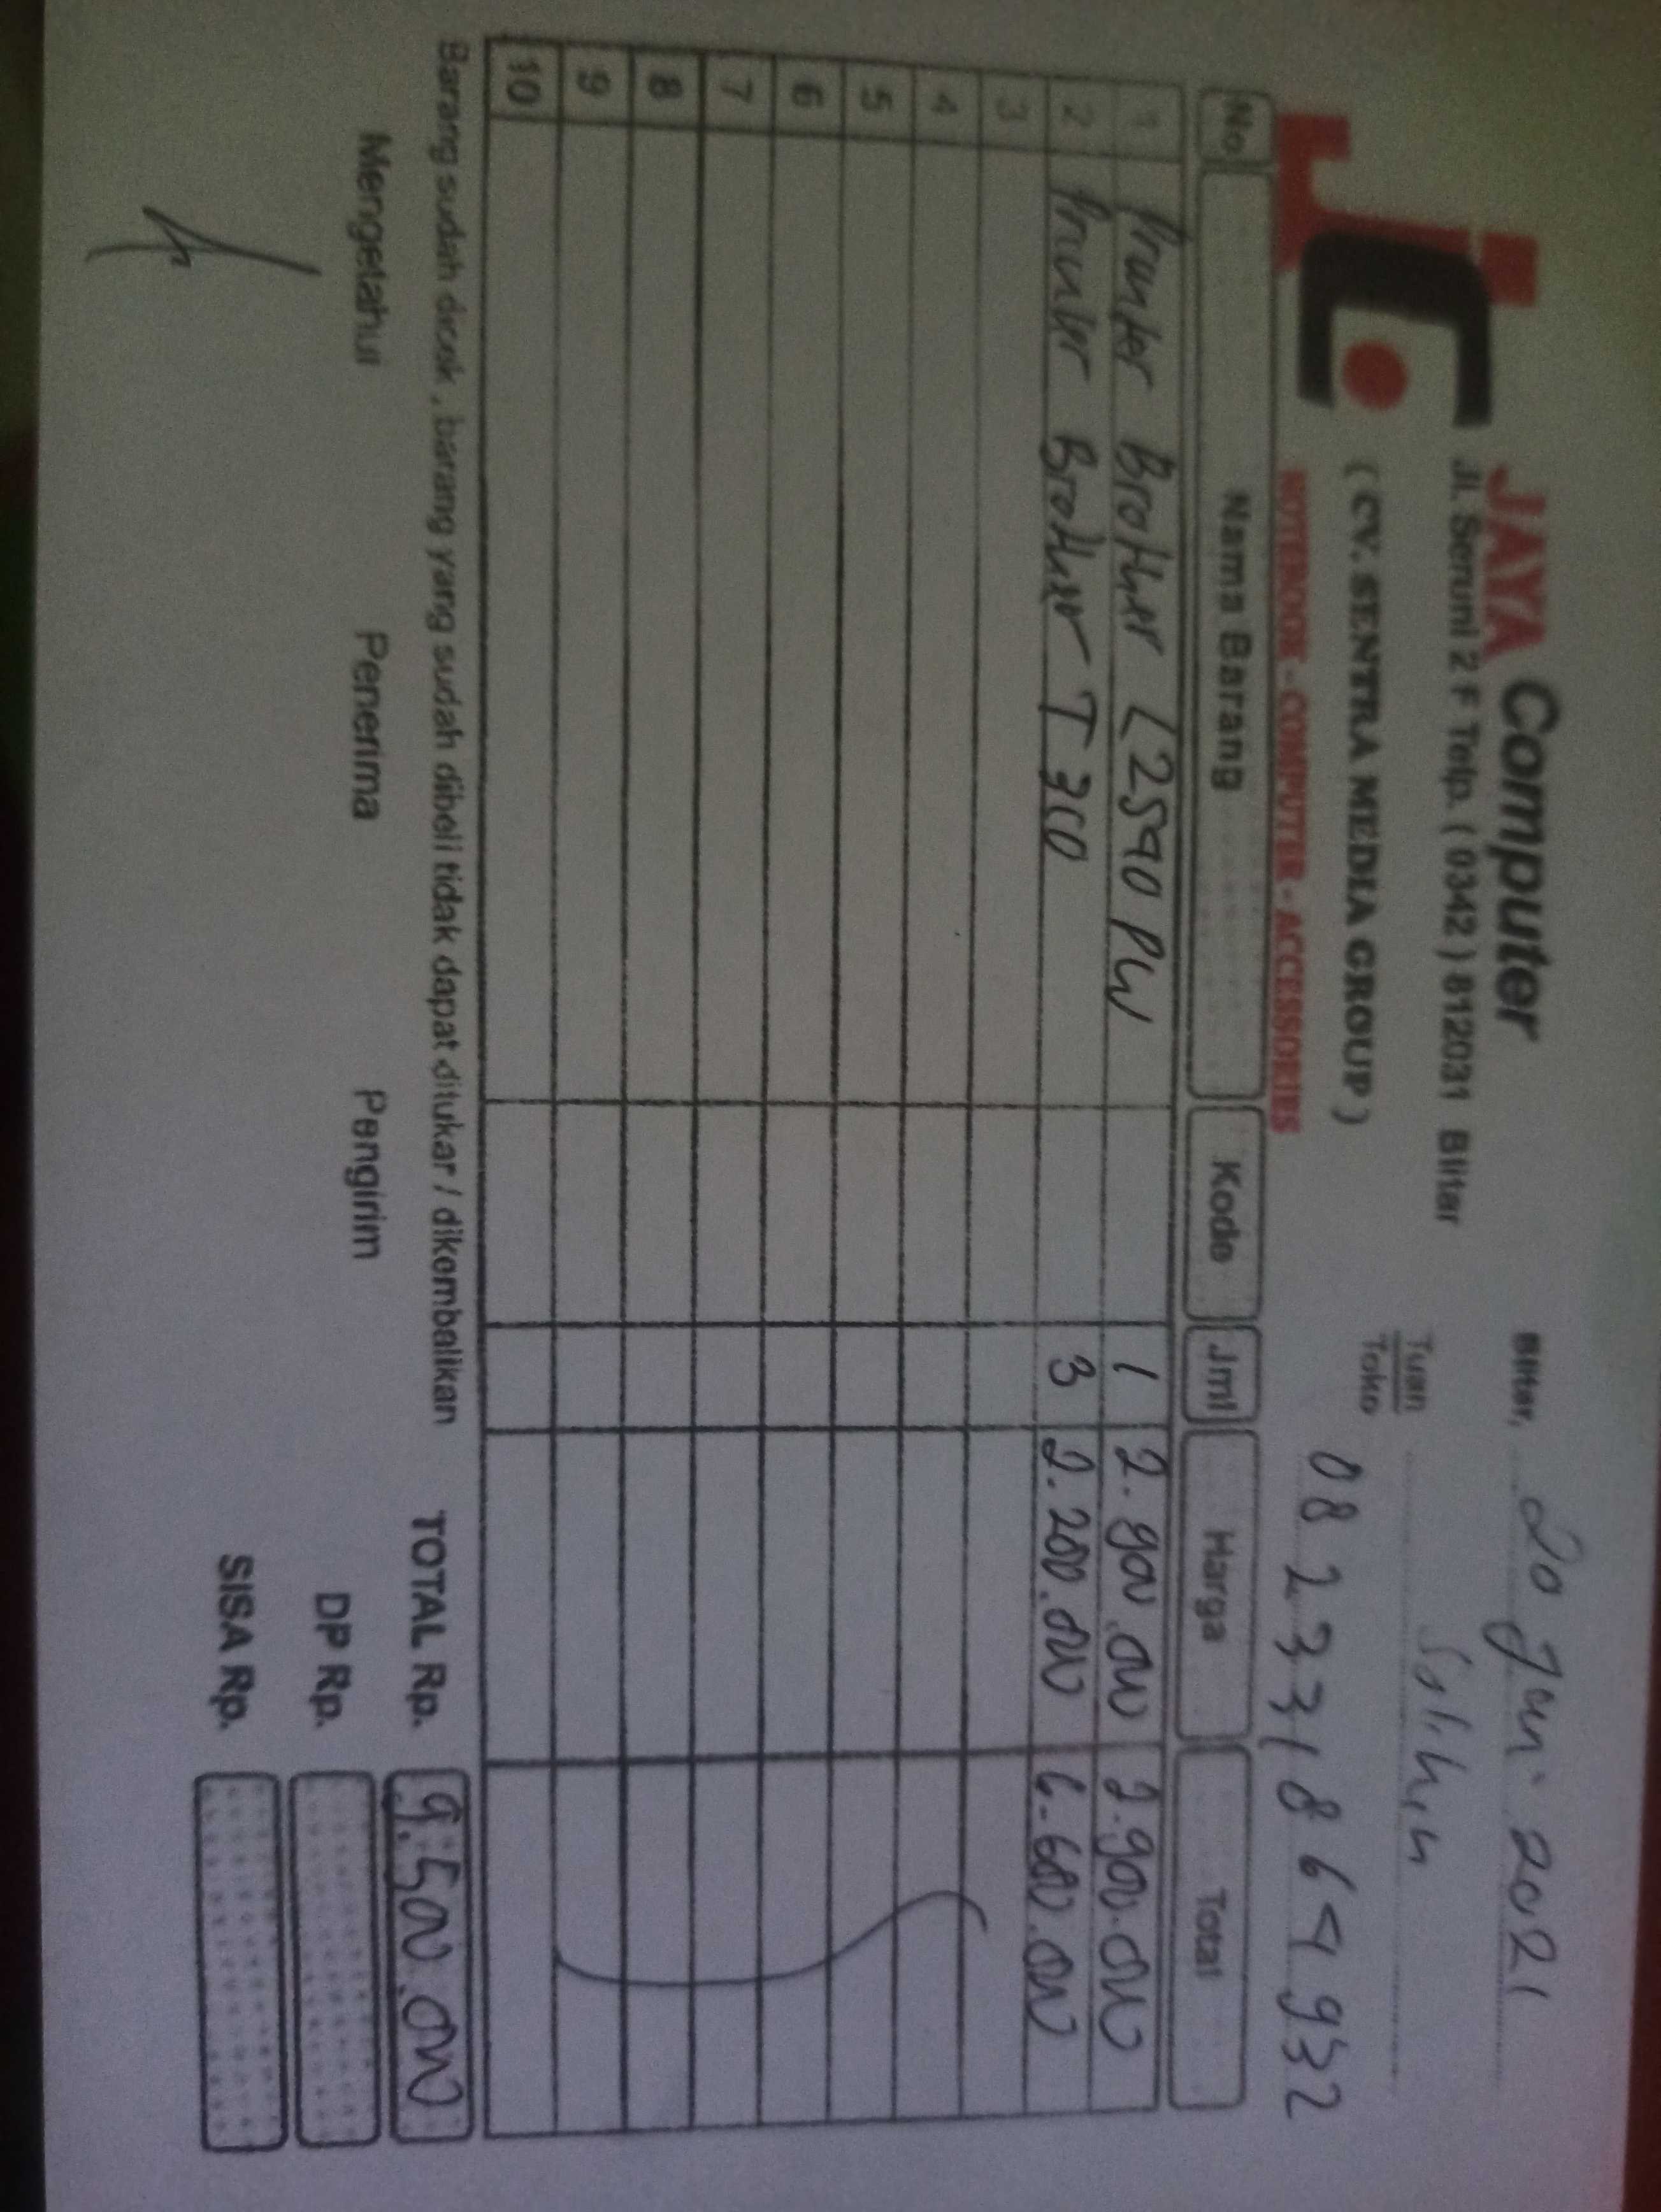 JC.
JAYA Computer
Jl. Seruni 2 F Telp. ( 0342 ) 812031 Blitar
( CV. SENTRA MEDIA GROUP )
NOTEBOOK - COMPUTER - ACCESSORIES
Blitar, 20 Juni 2021
Tuan Solihin
Toko
082331864932
No Nama Barang Kode Jml Harga Total
1 Printer Brother L2540 DW 1 2.900.000 2.900.000
2 Printer Brother T 300 3 2.200.000 6.600.000
3
4
5
6
7
8
9
10
Barang sudah dicek , barang yang sudah dibeli tidak dapat ditukar / dikembalikan
TOTAL Rp. 9.500.000
Mengetahui Penerima Pengirim
DP Rp.
SISA Rp.